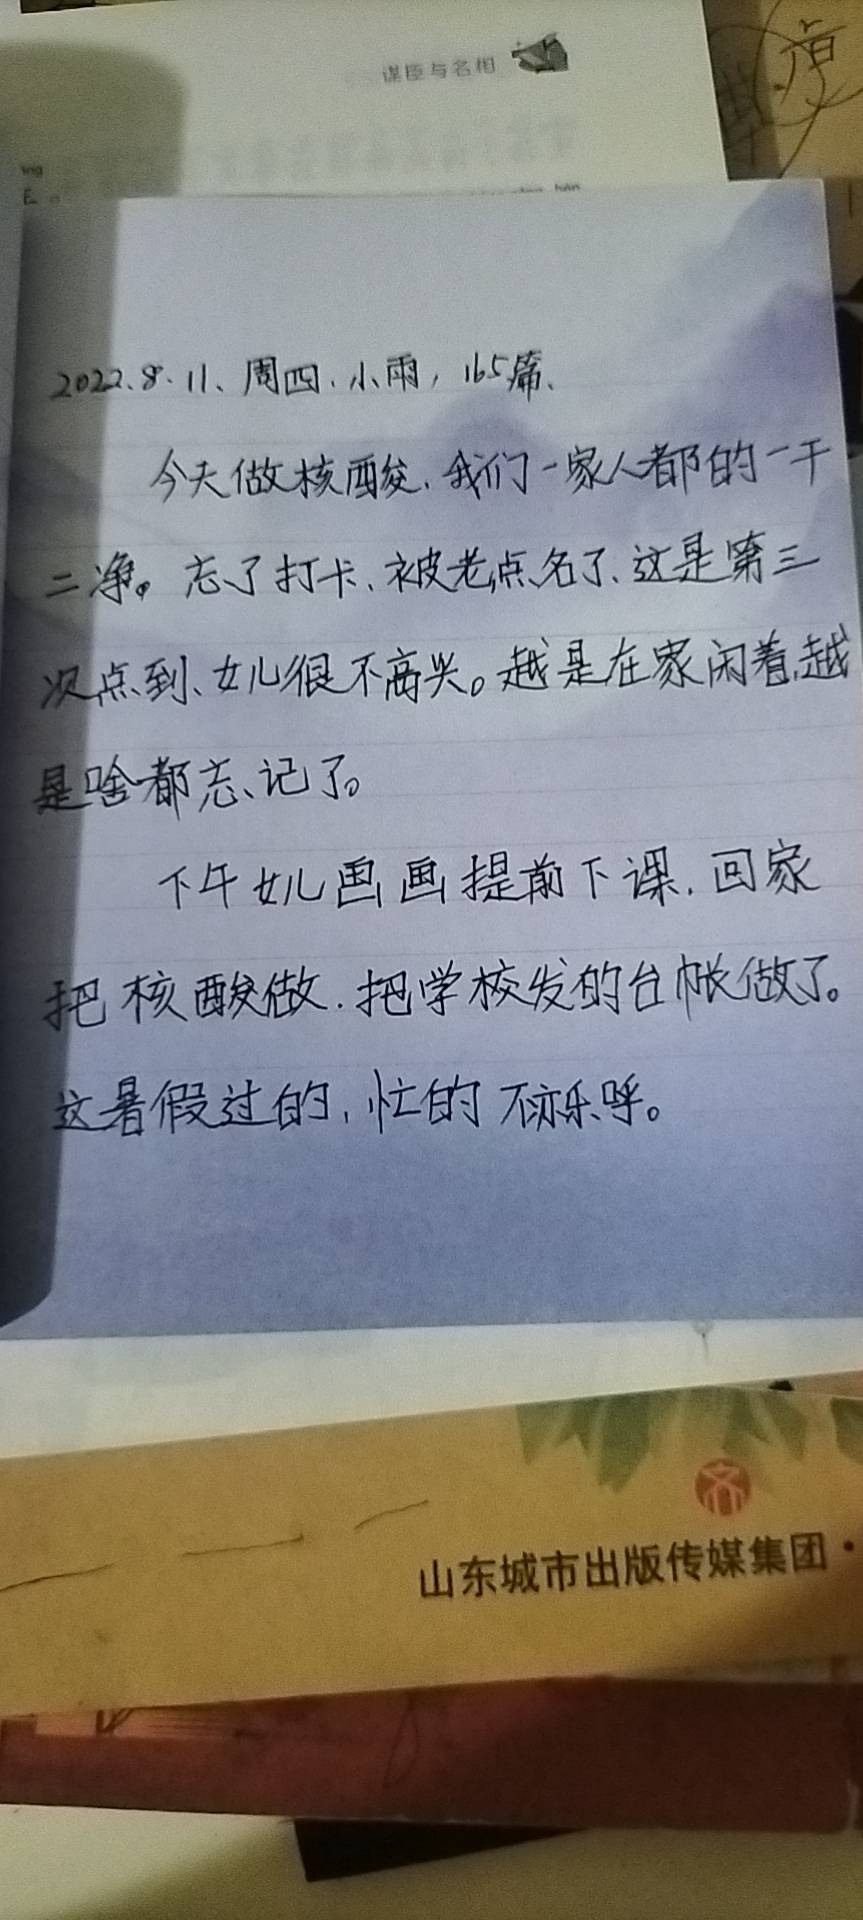 谋臣与名相
2022.8.11、周四.小雨，165篇、
今天做核酸.我们一家人都的一干
二净。忘了打卡、被老点名了、这是第三
次点到、女儿很不高兴。越是在家闲着,越
是啥都忘记了。
下午女儿画画提前下课.回家
把核酸做.把学校发的台帐做了。
这暑假过的,忙的不亦乐呼。
山东城市出版传媒集团·